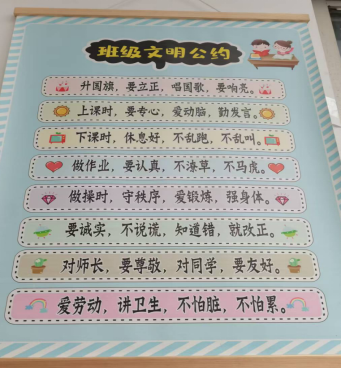 班级文明公约
升国旗，要立正，唱国歌，要响亮。
上课时，要专心，爱动脑，勤发言。
下课时，休息好，不乱跑，不乱叫。
做作业，要认真，不潦草，不马虎。
做操时，守秩序，爱锻炼，强身体。
要诚实，不说谎，知道错，就改正。
对师长，要尊敬，对同学，要友好。
爱劳动，讲卫生，不怕脏，不怕累。